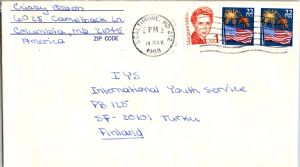 Crissy Olson
6025 Camelback Ln
Columbia, MD 21045
America
ZIP CODE
BALTIMORE, MD 212
PM
14 MAY
1988
22
22
IYS
International Youth Service
PB 125
SF-20101 Turku
Finland